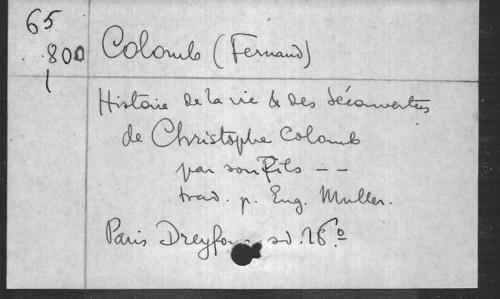 65
800
1
Colomb (Fernand)
Histoire de la vie & des découvertes
de Christophe Colomb
par son fils - -
trad. p. Eug. Muller.
Paris Dreyfous sd. 16º